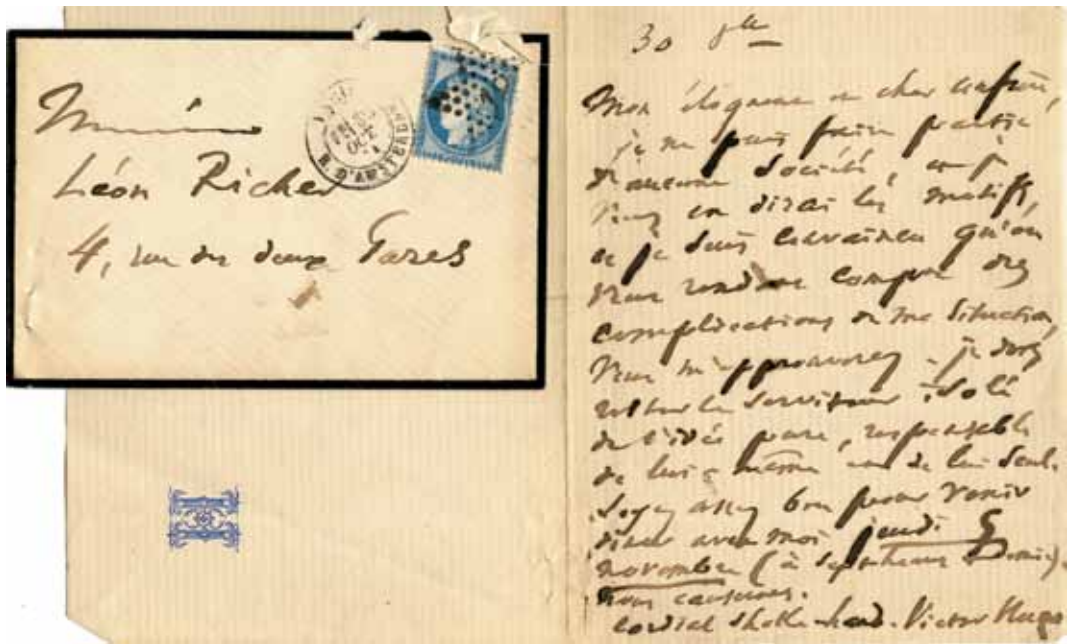 Monsieur
Léon Richer
4, rue des deux Gares
R. D'AMSTERDAM
30 8bre
Mon éloquent et cher confrère,
je ne puis faire partie
d'aucune société, et je
vous en dirai les motifs,
et je suis convaincu qu'en
vous rendant compte des
complications de ma situation,
vous m'approuverez. je dois
rester le serviteur isolé
de l'idée pure, responsable
de lui-même et de lui seul.
Soyez assez bon pour venir
dîner avec moi jeudi 5
novembre (à sept heures et demie).
nous causerons.
cordial shake-hand. Victor Hugo